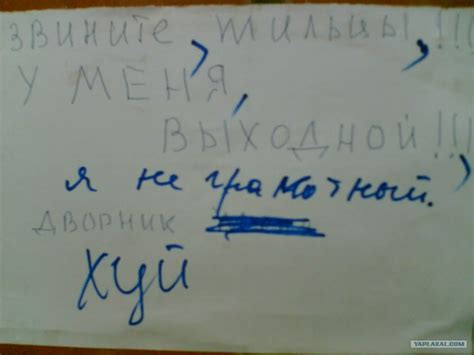 звините, жильцы, !!!
У МЕНЯ,
ВЫХОДНОЙ!!!,
я не грамотный.
ДВОРНИК
хуй
YAPLAKAL.COM